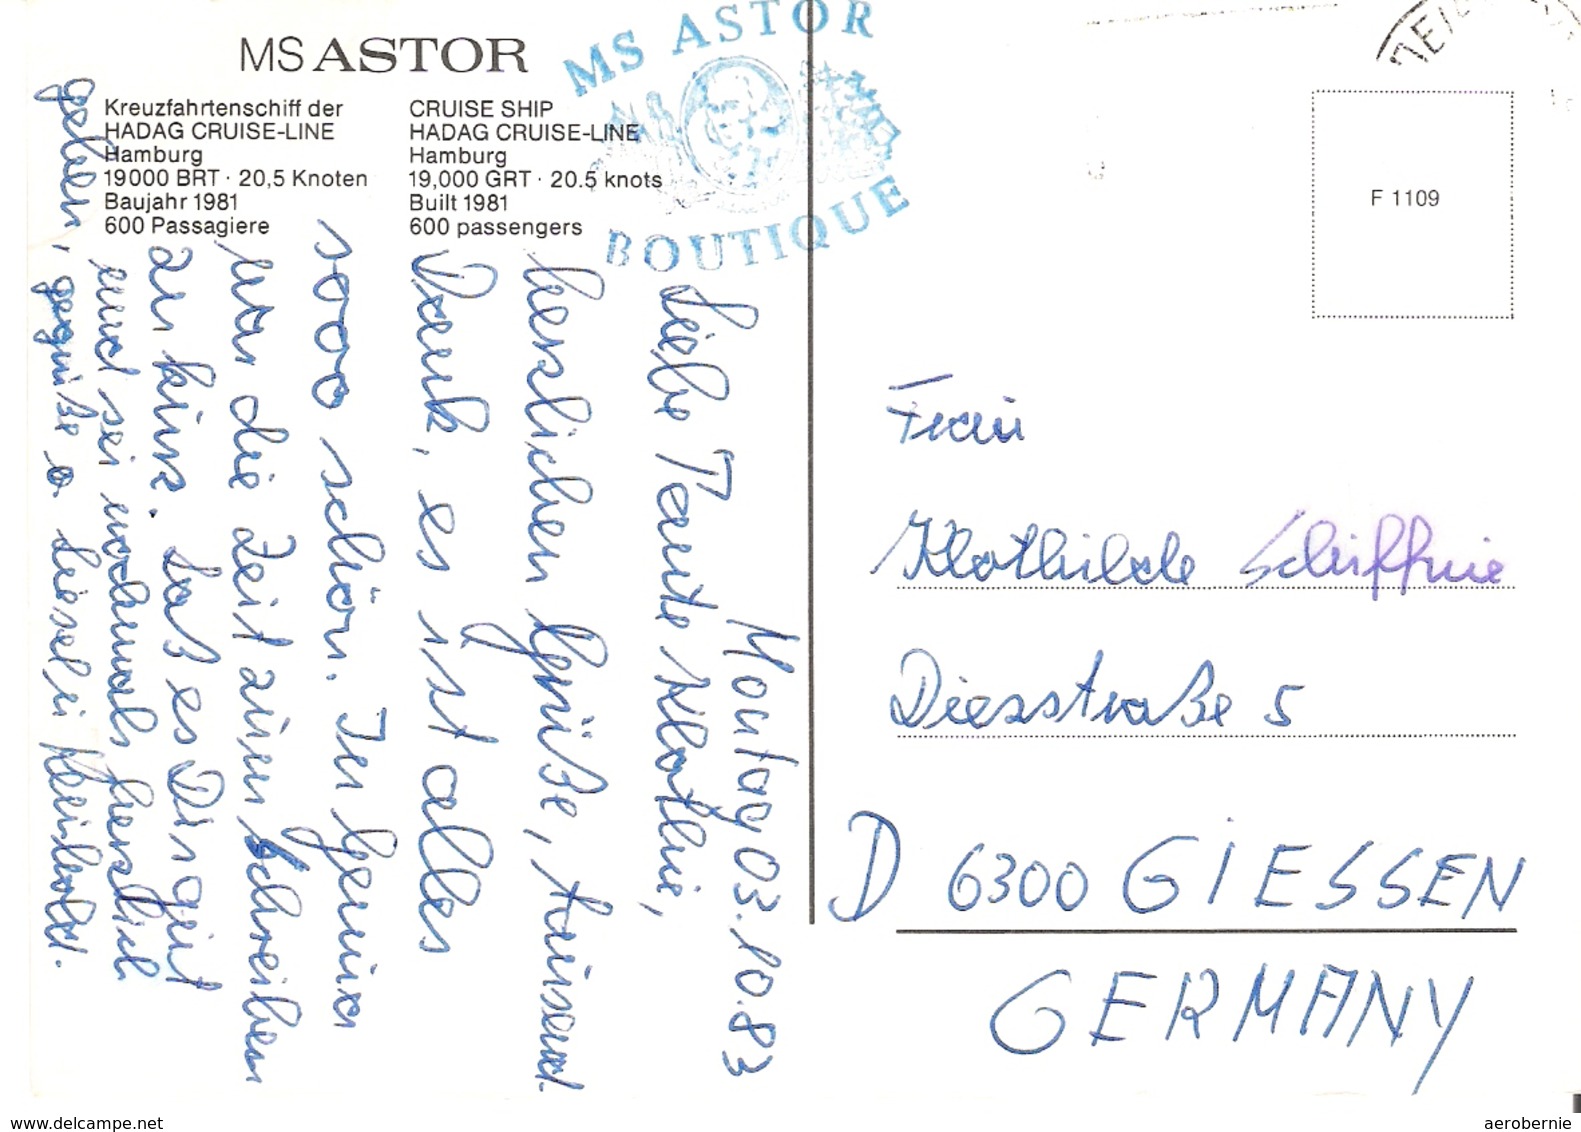 MS ASTOR
Kreuzfahrtenschiff der
HADAG CRUISE-LINE
Hamburg
19000 BRT · 20,5 Knoten
Baujahr 1981
600 Passagiere
CRUISE SHIP
HADAG CRUISE-LINE
Hamburg
19,000 GRT · 20.5 knots
Built 1981
600 passengers
MS ASTOR
BOUTIQUE
F 1109
Montag 03.10.83
Liebe Tante Klothie,
herzlichen Grüße, tausend
Dank, es ist alles
sooo schön. In Genua
war die Zeit zum Schreiben
zu kurz. Laß es Dir gut
und sei nochmals herzlich
gegrüßt Liesel Reinhold.
gehen,
Frau
Klothilde
Diezstraße 5
D 6300 GIESSEN
GERMANY
www.delcampe.net
aerobernie